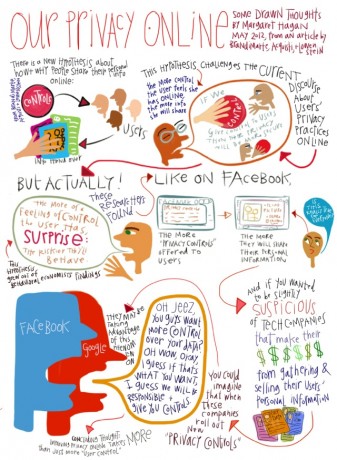 OUR PRIVACY ONLINE
SOME DRAWN THOUGHTS
BY MARGARET HAGAN
MAY 2012, FROM AN ARTICLE BY
BRANDIMARTE, ACQUISTI, + LOEWEN
STEIN
THERE IS A NEW HYPOTHESIS ABOUT
HOW + WHY PEOPLE SHARE THEIR PERSONAL
INFO
ONLINE:
CONTROL
USERS
THIS HYPOTHESIS CHALLENGES THE CURRENT
DISCOURSE
ABOUT
USERS'
PRIVACY
PRACTICES
ONLINE
THE MORE CONTROL
THE USER FEELS SHE
HAS ONLINE,
THE MORE INFO
SHE WILL SHARE
IF WE
GIVE
CONTROL
BUT ACTUALLY!
THESE
RESEARCHERS
FOUND
THE MORE OF A
FEELING OF CONTROL
THE USER HAS,
SURPRISE:
THE RISKIER THEY'LL
BEHAVE
THIS HYPOTHESIS
GREW OUT OF
BEHAVIORAL ECONOMISTS' FINDINGS
LIKE ON FACEBOOK,
THE MORE
"PRIVACY CONTROLS"
OFFERED TO
USERS
THE MORE
THEY WILL SHARE
THEIR PERSONAL
INFORMATION
FACEBOOK
GOOGLE
THEY MAY BE
TAKING
ADVANTAGE
OF THIS
PHENOM
ENON
OH JEEZ,
YOU GUYS WANT
MORE CONTROL
OVER YOUR DATA?
OH WOW, OKAY
I GUESS IF THAT'S
WHAT YOU WANT,
I GUESS WE WILL BE
RESPONSIBLE +
GIVE YOU CONTROLS.
AND IF YOU WANTED
TO BE SLIGHTLY
SUSPICIOUS
OF TECH COMPANIES
THAT MAKE THEIR
$ $ $ $ $ $
FROM GATHERING &
SELLING THEIR USERS'
PERSONAL INFORMATION
YOU COULD
IMAGINE
THAT WHEN
THESE
COMPANIES
ROLL OUT
NEW
"PRIVACY CONTROLS"
CONCLUDING THOUGHT:
IMPROVING PRIVACY ONLINE TAKES MORE
THAN JUST MORE "USER CONTROL"